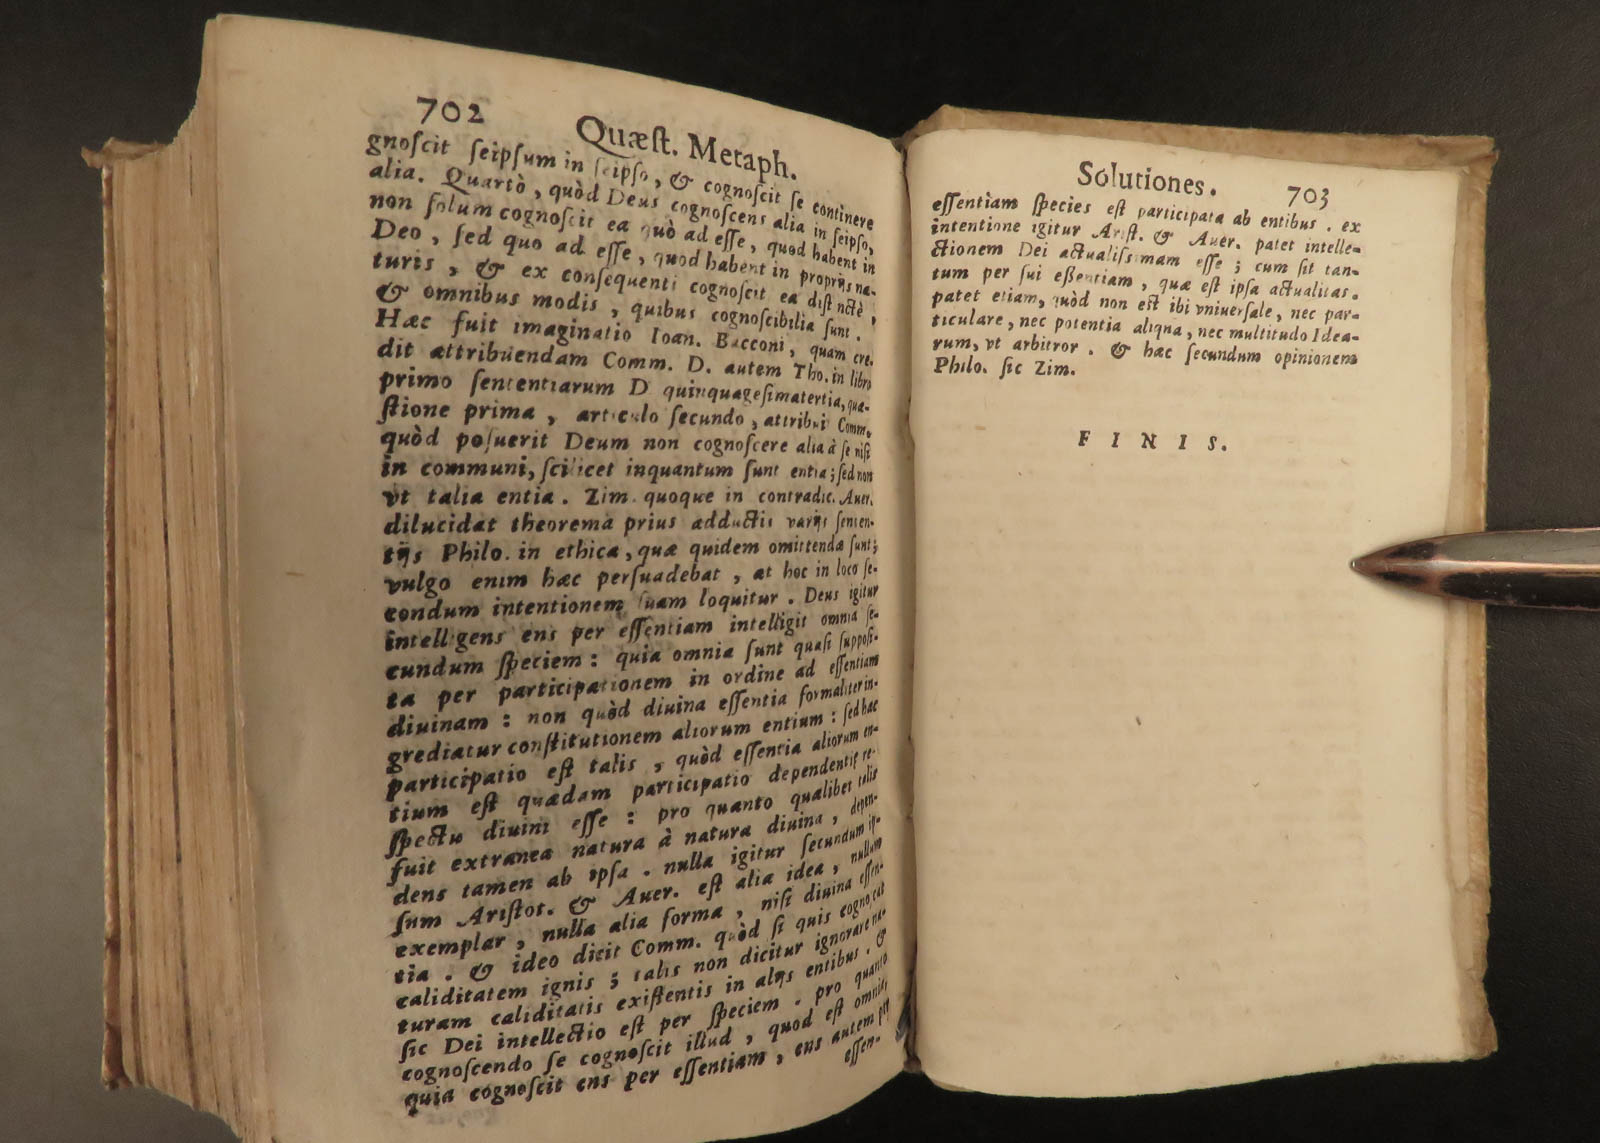 702
Quæſt. Metaph.
gnoſcit ſeipſum in ſeipſo, & cognoſcit ſe continere
alia. Quartò, quòd Deus cognoſcens alia in ſeipſo,
non ſolum cognoſcit ea quò ad eſſe, quod habent in
Deo, ſed quo ad eſſe, quod habent in proprijs na-
turis, & ex conſequenti cognoſcit ea diſtinctè,
& omnibus modis, quibus cognoſcibilia ſunt.
Hæc fuit imaginatio Ioan. Bacconi, quam cre-
dit attribuendam Comm. D. autem Tho. in libro
primo ſententiarum D quinquageſimatertia, quæ-
ſtione prima, articulo ſecundo, attribuit Comm.
quòd poſuerit Deum non cognoſcere alia à ſe niſi
in communi, ſcilicet inquantum ſunt entia; ſed non
vt talia entia. Zim. quoque in contradic. Auer.
dilucidat theorema prius adductis varijs ſenten-
tijs Philo. in ethica, quæ quidem omittendæ ſunt;
vulgo enim hæc perſuadebat, at hoc in loco ſe-
condum intentionem ſuam loquitur. Deus igitur
intelligens ens per eſſentiam intelligit omnia ſe-
cundum ſpeciem: quia omnia ſunt quaſi ſuppoſi-
ta per participationem in ordine ad eſſentiam
diuinam: non quòd diuina eſſentia formaliter in-
grediatur conſtitutionem aliorum entium: ſed hæc
participatio eſt talis, quòd eſſentia aliorum en-
tium eſt quædam participatio dependentiæ re-
ſpectu diuini eſſe: pro quanto qualibet talis
fuit extranea natura à natura diuina, depen-
dens tamen ab ipſa. nulla igitur ſecundum ip-
ſum Ariſtot. & Auer. eſt alia idea, nullum
exemplar, nulla alia forma, niſi diuina eſſen-
tia. & ideo dicit Comm. quòd ſi quis cognoſcat
caliditatem ignis; talis non dicitur ignorare na-
turam caliditatis exiſtentis in alijs entibus. &
ſic Dei intellectio eſt per ſpeciem. pro quanto
cognoſcendo ſe cognoſcit illud, quod eſt omnia,
quia cognoſcit ens per eſſentiam, ens autem per
eſſen-
Solutiones.
703
eſſentiam ſpecies eſt participata ab entibus. ex
intentione igitur Ariſt. & Auer. patet intelle-
ctionem Dei actualiſsimam eſſe; cum ſit tan-
tum per ſui eßentiam, quæ eſt ipſa actualitas.
patet etiam, quòd non eſt ibi vniuerſale, nec par-
ticulare, nec potentia aliqua, nec multitudo Idea-
rum, vt arbitror. & hæc ſecundum opinionem
Philo. ſic Zim.
FINIS.